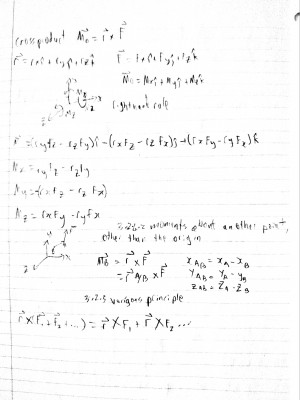 crossproduct M⃗o = r⃗ x F⃗
r⃗ = rxî + ryĵ + rzk̂ F⃗ = Fxî + Fyĵ + Fzk̂
M⃗o = Mxî + Myĵ + Mzk̂
right hand rule
= (ryFz - rzFy)î - (rxFz - rzFx)ĵ + (rxFy - ryFx)k̂
Mx = ryFz - rzFy
My = -(rxFz - rzFx)
Mz = rxFy - ryFx
3.2.2 moments about another point,
other than the origin
M⃗B = r⃗ x F⃗ xA/B = xA - xB
= r⃗A/B x F⃗ yA/B = yA - yB
zAB = zA - zB
3.2.3 varigons principle
r⃗ X (F⃗1 + F⃗2 + ...) = r⃗ X F1 + r⃗ X F2 ...